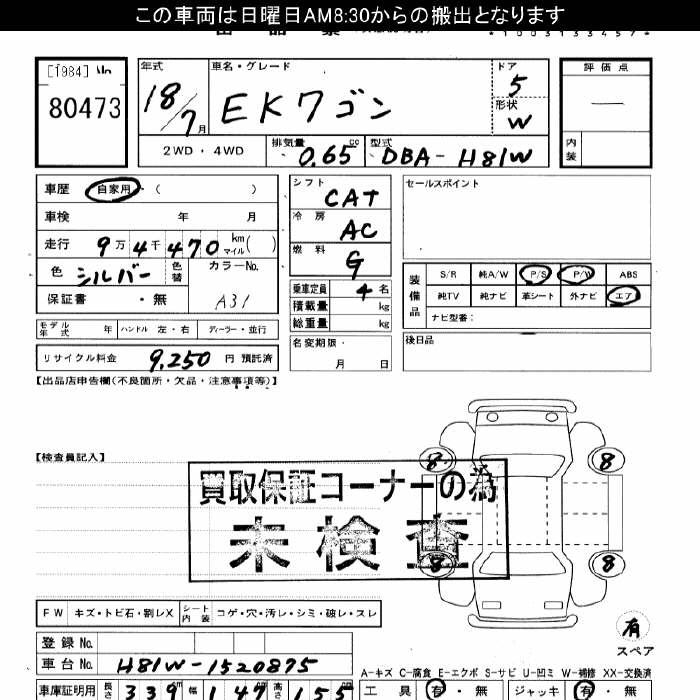 この車両は日曜日AM8:30からの搬出となります
*1003133457*
[1984] No
80473
年式 車名・グレード ドア 評価点
18/7月 EKワゴン 5 —
形状 W
2WD・4WD 排気量 0.65 cc 型式 DBA-H81W 内装
車歴 自家用 ( )
車検 年 月
走行 9万4千470 km マイル ( )
色 シルバー 色替 カラーNo.
保証書 ・無 A31
モデル年式 年 ハンドル 左・右 ディーラー・並行
リサイクル料金 9,250 円 預託済
シフト CAT
冷房 AC
燃料 G
乗車定員 4 名
積載量 kg
総重量 kg
名変期限・
月 日
セールスポイント
装備品 S/R 純A/W P/S P/W ABS
純TV 純ナビ 革シート 外ナビ エア
ナビ型番:
後日品
【出品店申告欄(不良箇所・欠品・注意事項等)】
【検査員記入】
買取保証コーナーの為
未検査
8 8
8 8
有
スペア
FW キズ・トビ石・割レX シート内装 コゲ・穴・汚レ・シミ・破レ・スレ
登録No.
車台No. H81W-1520875
A-キズ C-腐食 E-エクボ S-サビ U-凹ミ W-補修 XX-交換済
車庫証明用 長さ 339 幅 147 高さ 155
工具 有・無 ジャッキ 有・無